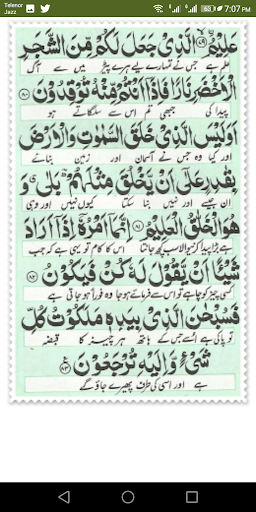 Telenor
Jazz
7:07 PM
عَلِيْمُۨ ﴿۷۹﴾ الَّذِيْ جَعَلَ لَكُمْ مِّنَ الشَّجَرِ
علم ہے جس نے تمہارے لیے ہرے پیڑ میں سے آگ
الْاَخْضَرِ نَارًا فَاِذَاۤ اَنْتُمْ مِّنْهُ تُوْقِدُوْنَ ﴿۸۰﴾
پیدا کی جبھی تم اس سے سلگاتے ہو
اَوَلَيْسَ الَّذِيْ خَلَقَ السَّمٰوٰتِ وَالْاَرْضَ
اور کیا وہ جس نے آسمان اور زمین بنائے
بِقٰدِرٍ عَلٰۤى اَنْ يَّخْلُقَ مِثْلَهُمْ ؕ بَلٰى ۗ وَ
ان جیسے اور نہیں بنا سکتا کیوں نہیں اور وہی
هُوَ الْخَلّٰقُ الْعَلِيْمُ ﴿۸۱﴾ اِنَّمَاۤ اَمْرُهٗۤ اِذَاۤ اَرَادَ
ہے بڑا پیدا کرنیوالا سب کچھ جانتا اس کا کام تو یہی ہے کہ جب
شَيْـًٔا اَنْ يَّقُوْلَ لَهٗ كُنْ فَيَكُوْنُ ﴿۸۲﴾
کسی چیز کو چاہے تو اس سے فرمائے ہو جا وہ فوراً ہو جاتی ہے
فَسُبْحٰنَ الَّذِيْ بِيَدِهٖ مَلَكُوْتُ كُلِّ
تو پاکی ہے اُسے جس کے ہاتھ ہر چیز کا قبضہ
شَيْءٍ وَّاِلَيْهِ تُرْجَعُوْنَ ﴿۸۳﴾ ع
ہے اور اسی کی طرف پھیرے جاؤ گے